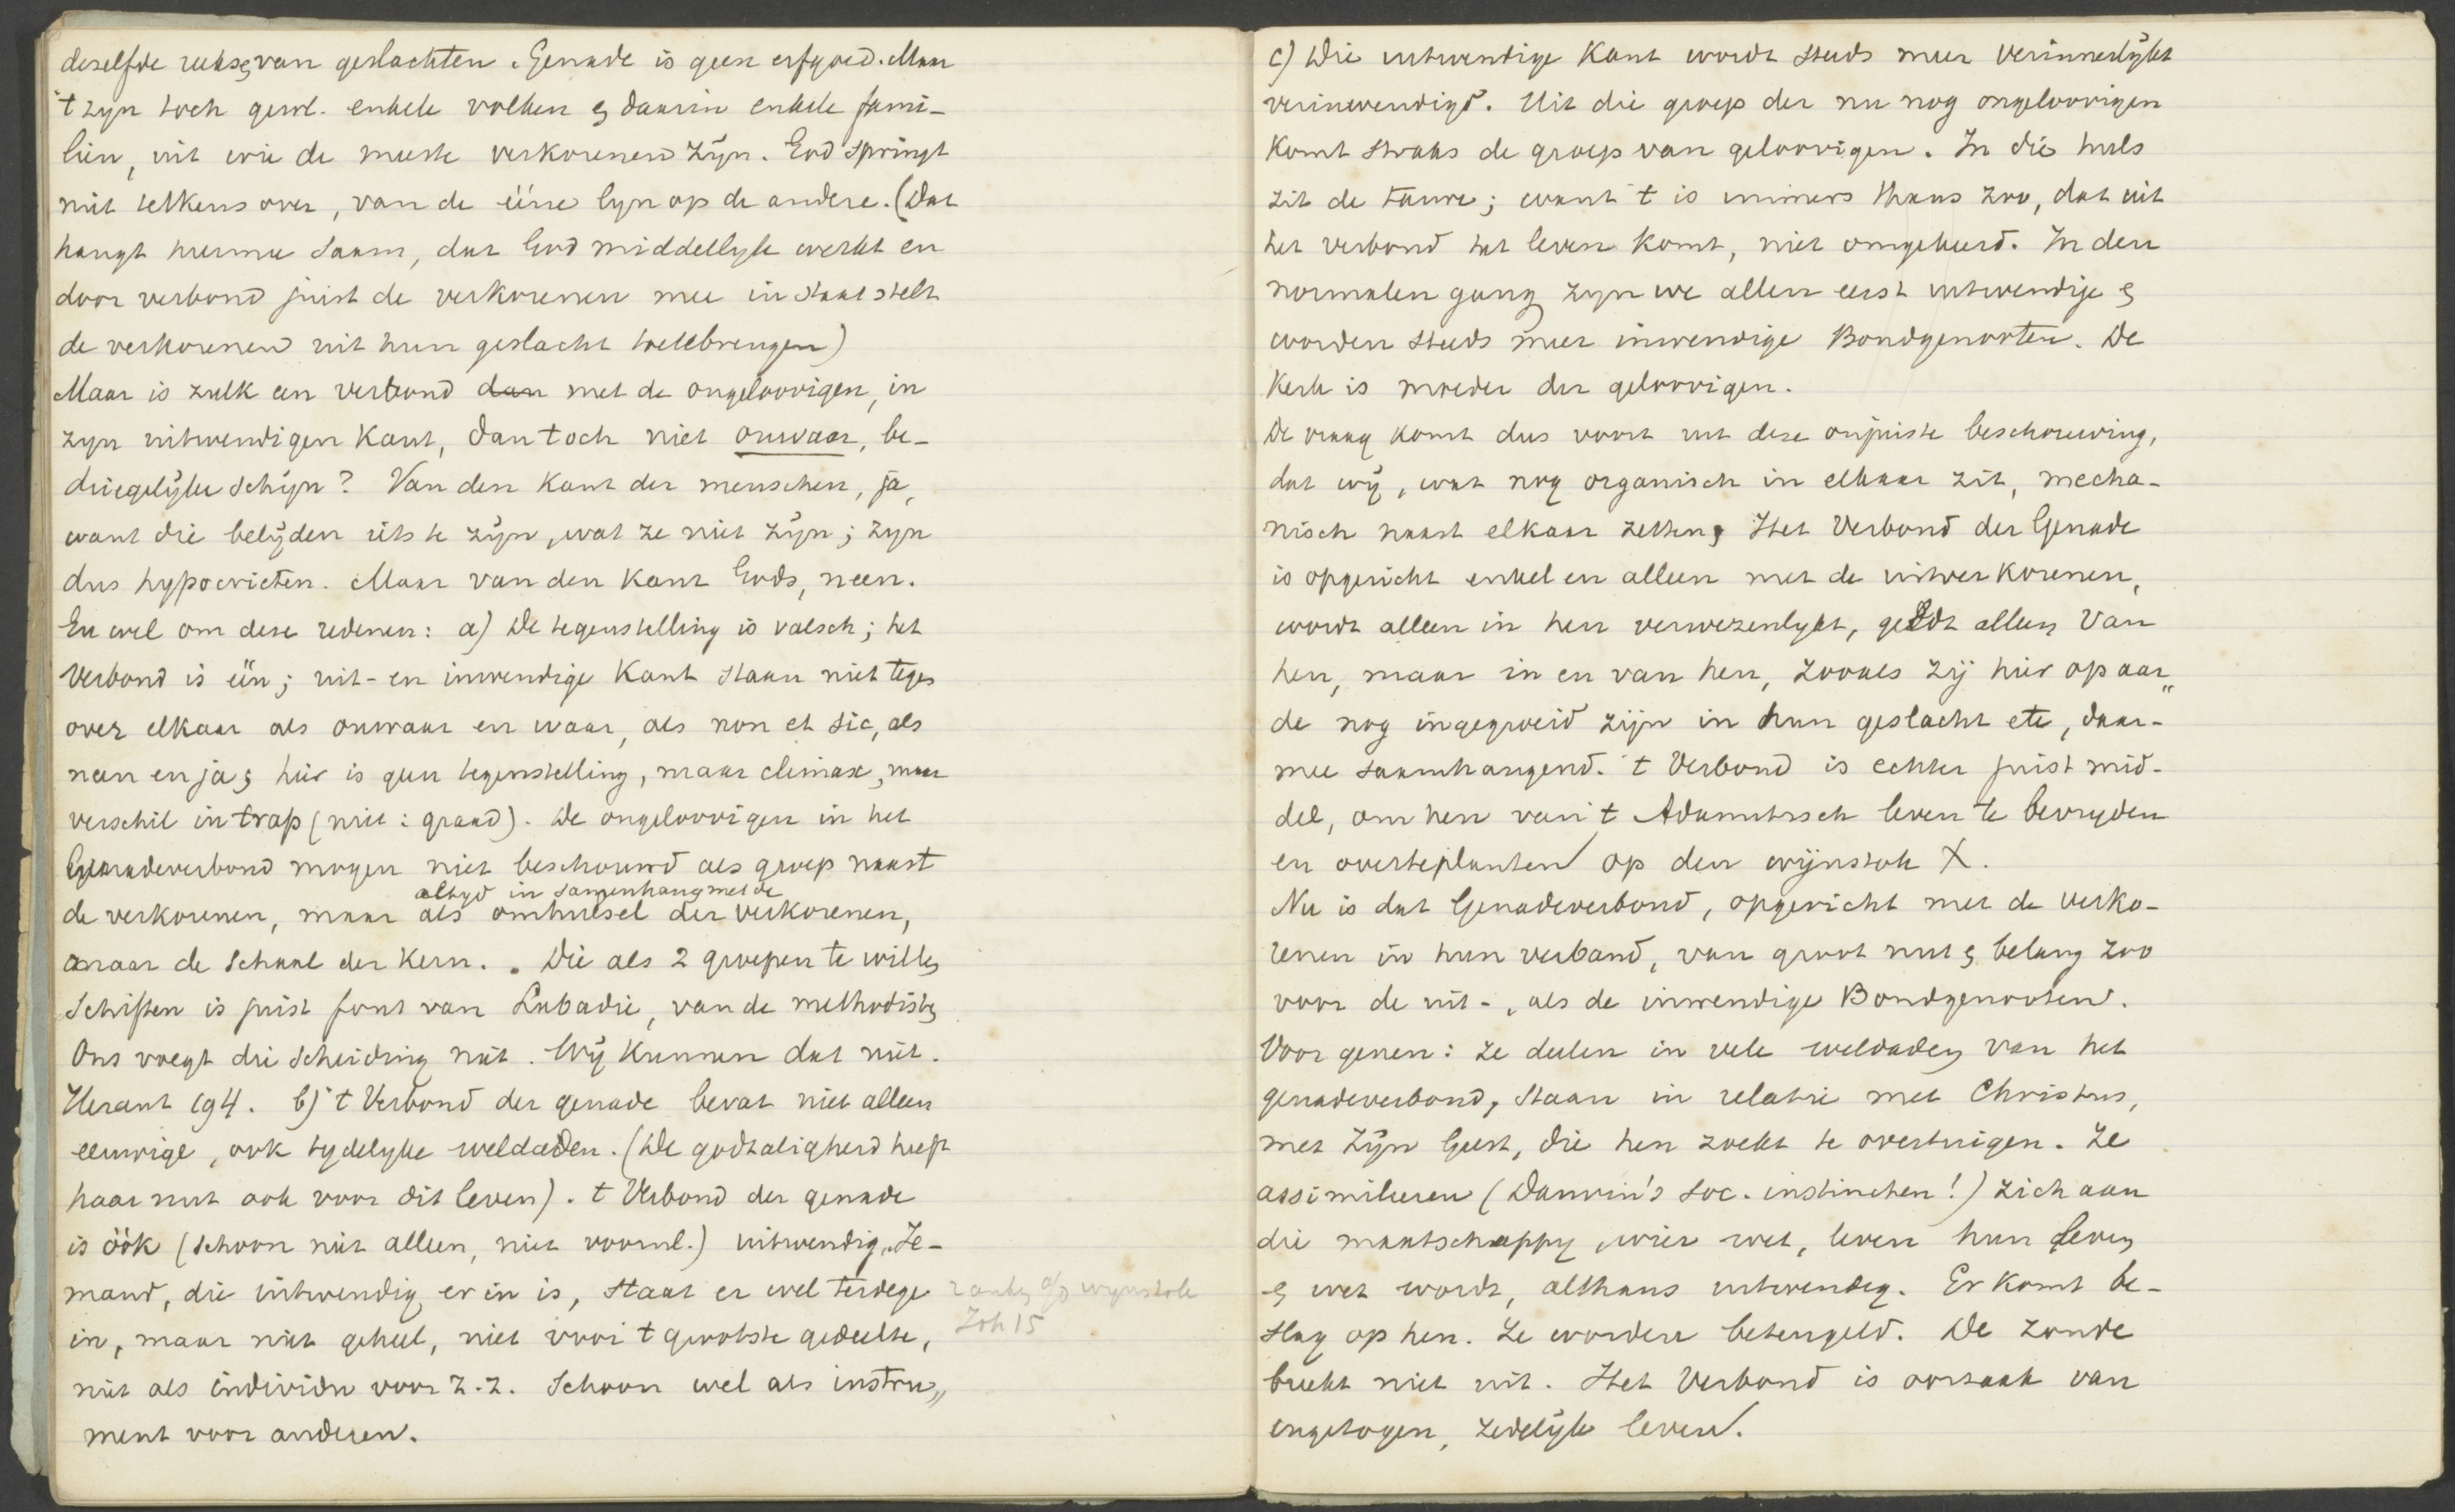 deselfde reeksen van geslachten. Genade is geen erfgoed. Maar
't zyn toch gewl. enkele volken en daarin enkele fami-
liën, uit wie de meeste verkorenen zÿn. God springt
niet telkens over, van de ééne lyn op de andere. (Dat
hangt hiermee saam, dat God middellyk werkt en
door verbond juist de verkorenen mee in staat stelt
de verkorenen uit hun geslacht toetebrengen)
Maar is zulk een verbond dan met de ongeloovigen, in
zyn uitwendigen kant, dan toch niet onwaar, be-
driegelÿke schÿn? Van den kant der menschen, ja,
want die belÿden iets te zÿn, wat ze niet zÿn; zyn
dus hypocrieten. Maar van den kant Gods, neen.
En wel om deze redenen: a) De tegenstelling is valsch; het
Verbond is één; uit- en inwendige kant staan niet tegen
over elkaar als onwaar en waar, als non et sic, als
neen en ja; hier is geen tegenstelling, maar climax, maar
verschil in trap (niet: graad). De ongeloovigen in het
Genadeverbond mogen niet beschouwd als groep naast
altyd in samenhang met de
de verkorenen, maar als omhulsel der verkorenen,
maar de schaal der kern. Die als 2 groepen te willen
schiften is juist fout van Labadie, van de methodisten
Ons voegt die scheiding niet. Wÿ kunnen dat niet.
Heraut 194. b) 't Verbond der genade bevat niet alleen
eeuwige, ook tydelyke weldaden. (De godzaligheid heeft
haar nut ook voor dit leven). 't Verbond der genade
is óók (schoon niet alleen, niet voornl.) uitwendig. Ie-
mand, die uitwendig er in is, staat er wel terdege
in, maar niet geheel, niet voor 't grootste gedeelte,
niet als individu voor z.z. Schoon wel als instru„
ment voor anderen.
ranken a/d wynstok
Joh 15
c) Die uitwendige kant wordt steeds meer verinnerlÿkt
verinwendigd. Uit die groep der nu nog ongeloovigen
komt straks de groep van geloovigen. In die huls
zit de tarwe; want 't is immers thans zoo, dat uit
het verbond het leven komt, niet omgekeerd. In den
normalen gang zyn we allen eerst uitwendige en
worden steeds meer inwendige Bondgenooten. De
Kerk is moeder der geloovigen.
De vraag komt dus voort uit deze onjuiste beschouwing,
dat wÿ, wat nog organisch in elkaar zit, mecha-
nisch naast elkaar zetten, Het Verbond der Genade
is opgericht enkel en alleen met de uitverkorenen,
wordt alleen in hen verwezenlykt, geldt alleen van
hen, maar in en van hen, zooals zij hier op aar„
de nog ingegroeid zijn in hun geslacht etc, daar-
mee saamhangend. 't Verbond is echter juist mid-
del, om hen van 't Adamitisch leven te bevryden
en overteplanten op den wÿnstok X.
Nu is dat Genadeverbond, opgericht met de verko-
renen in hun verband, van groot nut en belang zoo
voor de uit-, als de inwendige Bondgenooten.
Voor genen: ze deelen in vele weldaden van het
genadeverbond, staan in relatie met Christus,
met Zÿn Geest, die hen zoekt te overtuigen. Ze
assimileeren (Darwin's soc. instincten!) zich aan
die maatschappy, wier wet, leven hun leven
en wet wordt, althans uitwendig. Er komt be-
slag op hen. Ze worden beteugeld. De zonde
breekt niet uit. Het Verbond is oorzaak van
ingetogen, zedelÿk leven.